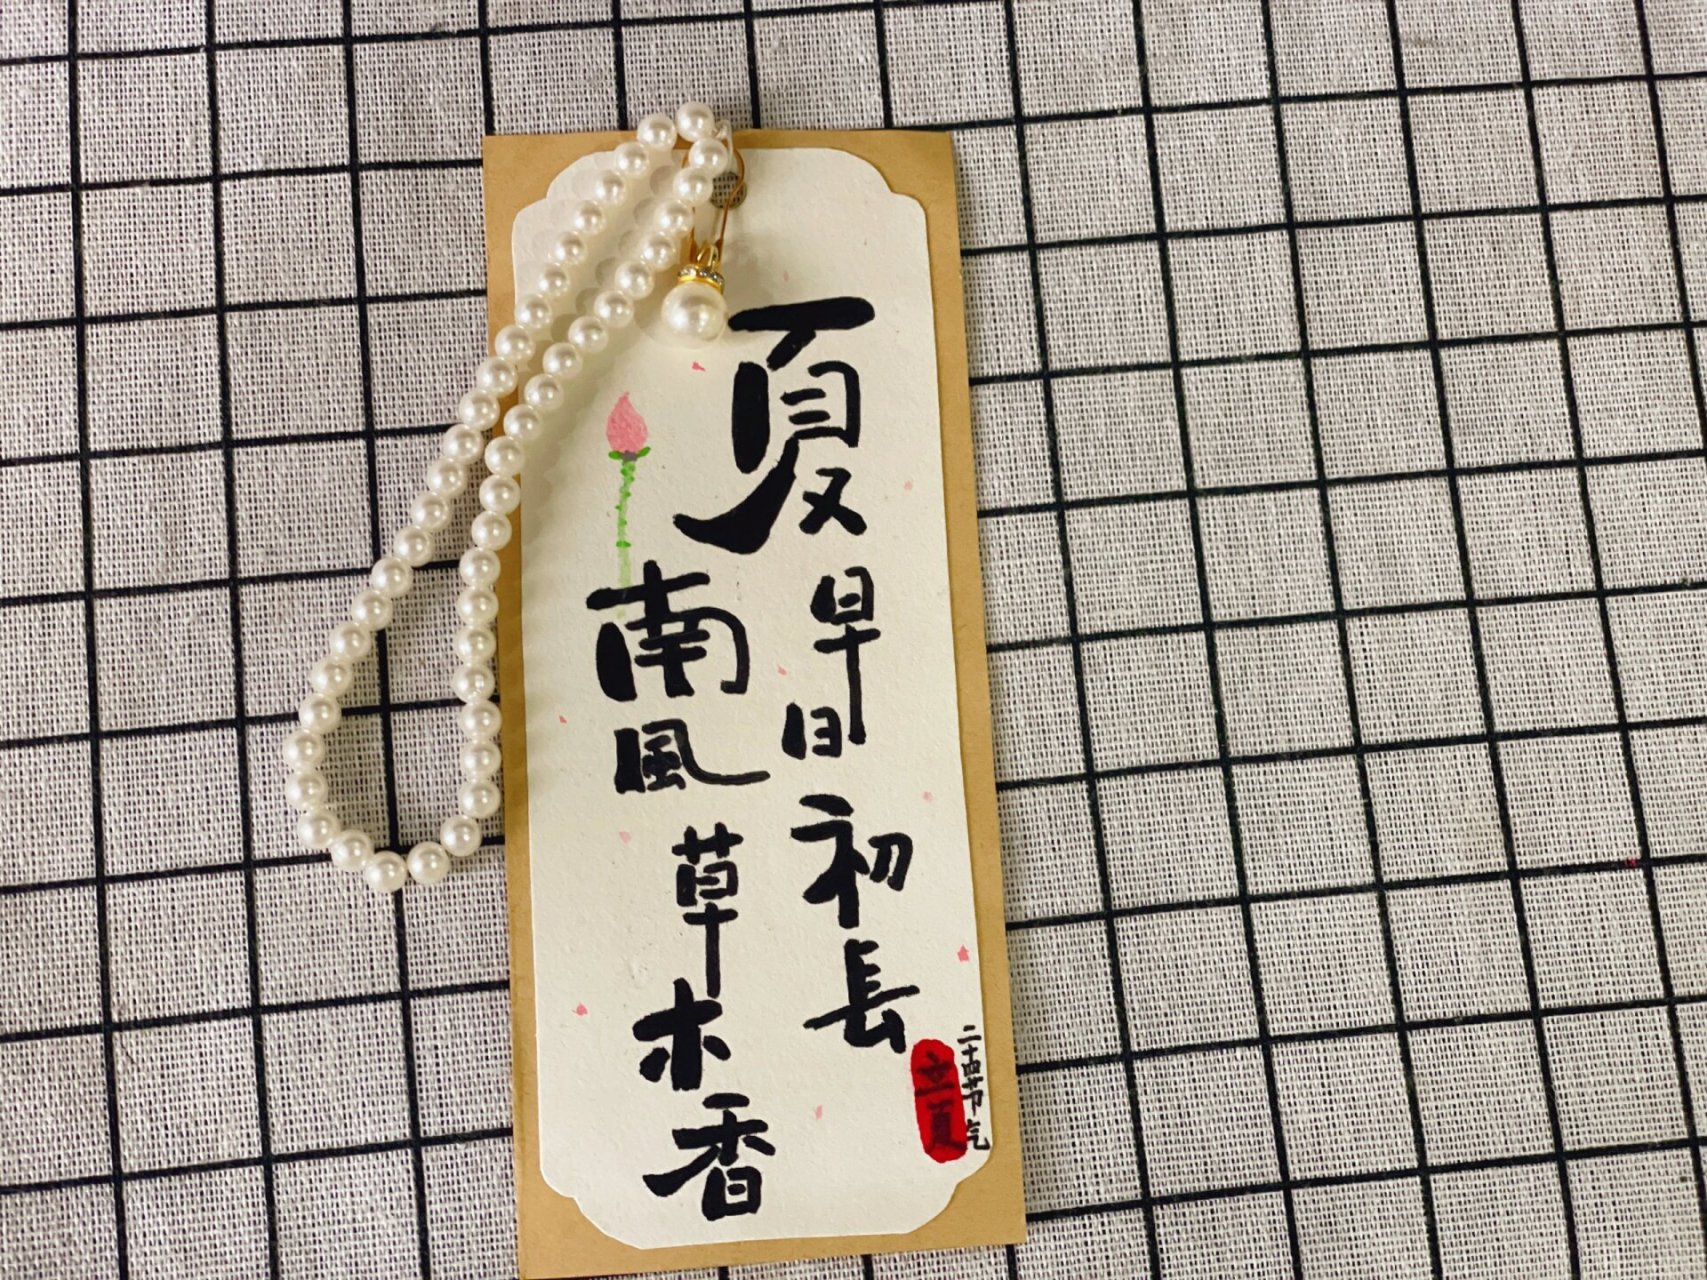 夏早日初長
南風草木香
二十四节气
立夏